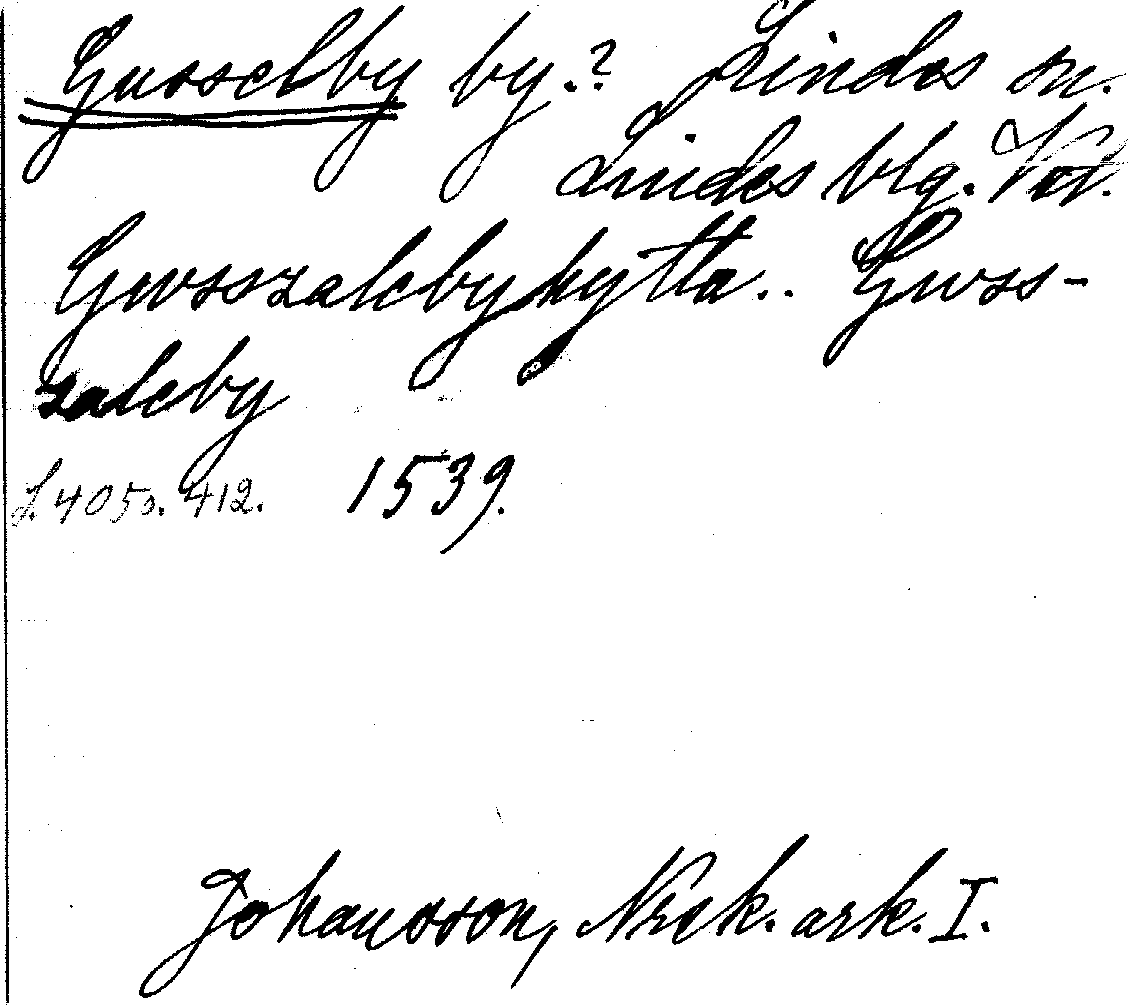 Gusselby by.? Lindes sn.
Lindes blg. Vstl.
Gwsszalebyhytta.. Gwss-
zaleby
L. 4050. 412. 1539.
Johansson, Nrck. ark. I.